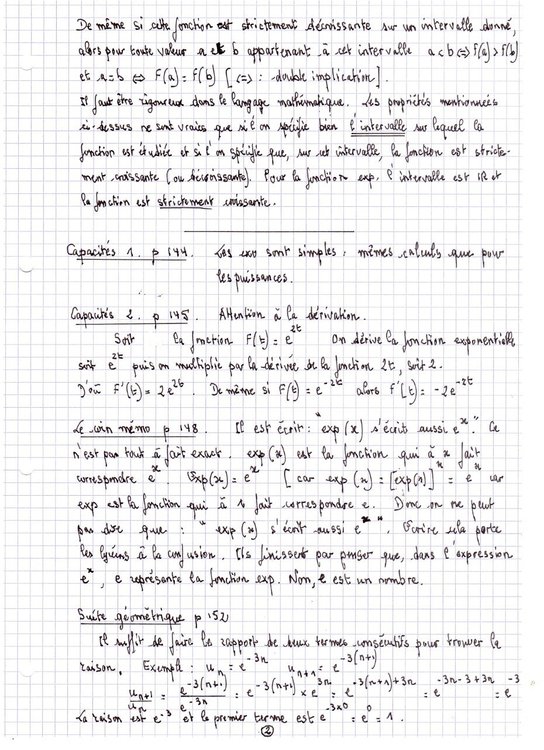 De même si cette fonction est strictement décroissante sur un intervalle donné,
alors pour toute valeur a et b appartenant à cet intervalle a < b ⇔ f(a) > f(b)
et a = b ⇔ f(a) = f(b) [ ⇔ : double implication ].
Il faut être rigoureux dans le langage mathématique. Les propriétés mentionnées
ci-dessus ne sont vraies que si l'on spécifie bien l'intervalle sur lequel la
fonction est étudiée et si l'on spécifie que, sur cet intervalle, la fonction est stricte-
ment croissante (ou décroissante). Pour la fonction exp. l'intervalle est IR et
la fonction est strictement croissante.
Capacités 1. p 144. Les exo sont simples : mêmes calculs que pour
les puissances.
Capacités 2. p 145. Attention à la dérivation.
Soit la fonction F(t) = e^{2t} On dérive la fonction exponentielle
soit e^{2t} puis on multiplie par la dérivée de la fonction 2t, soit 2.
D'où F'(t) = 2e^{2t}. De même si F(t) = e^{-2t} alors F'(t) = -2e^{-2t}
Le coin mémo p 148. Il est écrit : " exp(x) s'écrit aussi e^x ". Ce
n'est pas tout à fait exact. exp(x) est la fonction qui à x fait
correspondre e^x. exp(x) = e^x [ car exp(x) = [exp(1)]^x = e^x car
exp est la fonction qui à 1 fait correspondre e. Donc on ne peut
pas dire que : " exp(x) s'écrit aussi e^x ". Écrire cela porte
les lycéens à la confusion. Ils finissent par penser que, dans l'expression
e^x, e représente la fonction exp. Non, e est un nombre.
Suite géométrique p 152
Il suffit de faire le rapport de deux termes consécutifs pour trouver la
raison. Exemple : u_n = e^{-3n} u_{n+1} = e^{-3(n+1)}
u_{n+1}/u_n = e^{-3(n+1)}/e^{-3n} = e^{-3(n+1)} × e^{3n} = e^{-3(n+1)+3n} = e^{-3n-3+3n} = e^{-3}
La raison est e^{-3} et le premier terme est e^{-3×0} = e^0 = 1.
2